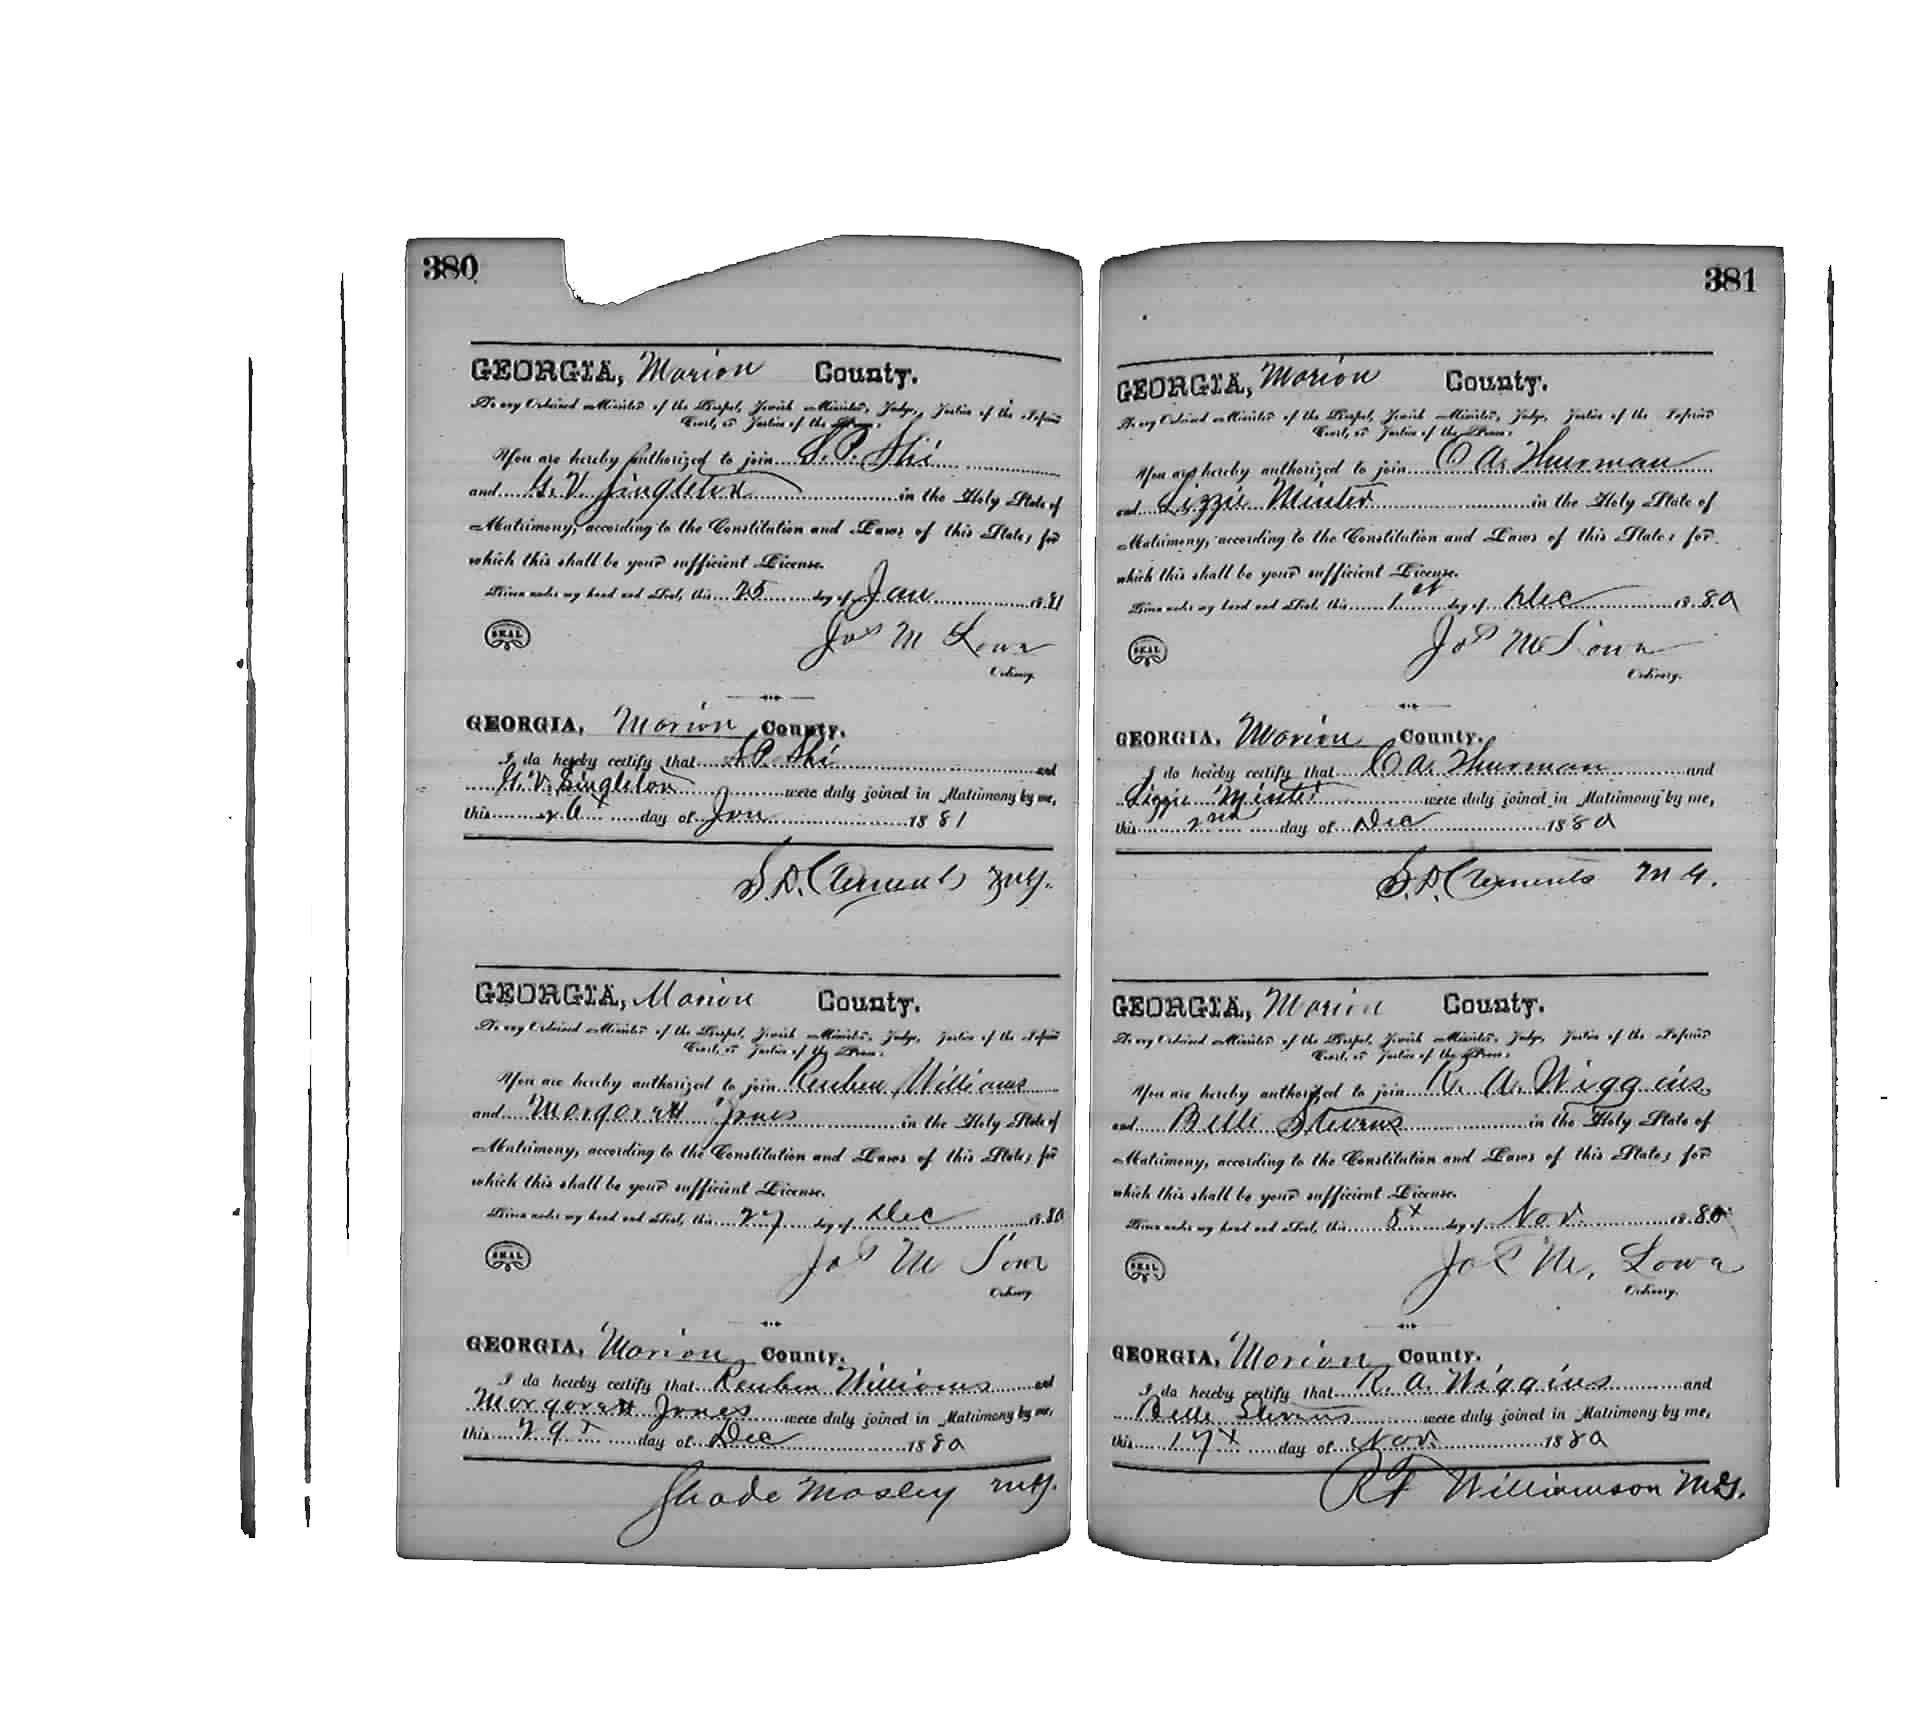 380
GEORGIA, Marion County.
To any Ordained Minister of the Gospel, Jewish Minister, Judge, Justice of the Inferior
Court, or Justice of the Peace:
You are hereby authorized to join S. P. Shi
and G. V. Singleton in the Holy State of
Matrimony, according to the Constitution and Laws of this State; for
which this shall be your sufficient License.
Given under my hand and Seal, this 25 day of Jan 1881
SEAL
Jas M Lowe
Ordinary.
GEORGIA, Marion County.
I do hereby certify that S P Shi and
G. V. Singleton were duly joined in Matrimony by me,
this 26 day of Jan 1881
S. D. Clements MG.
GEORGIA, Marion County.
To any Ordained Minister of the Gospel, Jewish Minister, Judge, Justice of the Inferior
Court, or Justice of the Peace:
You are hereby authorized to join Reuben Williams
and Margarett Jones in the Holy State of
Matrimony, according to the Constitution and Laws of this State; for
which this shall be your sufficient License.
Given under my hand and Seal, this 27 day of Dec 1880
SEAL
Jas M Lowe
Ordinary.
GEORGIA, Marion County.
I do hereby certify that Reuben Williams and
Margarett Jones were duly joined in Matrimony by me,
this 29 day of Dec 1880
Shade Mosley MG.
381
GEORGIA, Marion County.
To any Ordained Minister of the Gospel, Jewish Minister, Judge, Justice of the Inferior
Court, or Justice of the Peace:
You are hereby authorized to join C A. Thurman
and Lizzie Minter in the Holy State of
Matrimony, according to the Constitution and Laws of this State; for
which this shall be your sufficient License.
Given under my hand and Seal, this 1st day of Dec 1880
SEAL
Jas M Lowe
Ordinary.
GEORGIA, Marion County.
I do hereby certify that C A. Thurman and
Lizzie Minter were duly joined in Matrimony by me,
this 2nd day of Dec 1880
S. D. Clements M G.
GEORGIA, Marion County.
To any Ordained Minister of the Gospel, Jewish Minister, Judge, Justice of the Inferior
Court, or Justice of the Peace:
You are hereby authorized to join R. A. Wiggins
and Belle Stevens in the Holy State of
Matrimony, according to the Constitution and Laws of this State; for
which this shall be your sufficient License.
Given under my hand and Seal, this 8 day of Nov. 1880
SEAL
Jas M. Lowe
Ordinary.
GEORGIA, Marion County.
I do hereby certify that R. A. Wiggins and
Belle Stevens were duly joined in Matrimony by me,
this 17 day of Nov. 1880
R F Williamson MG.